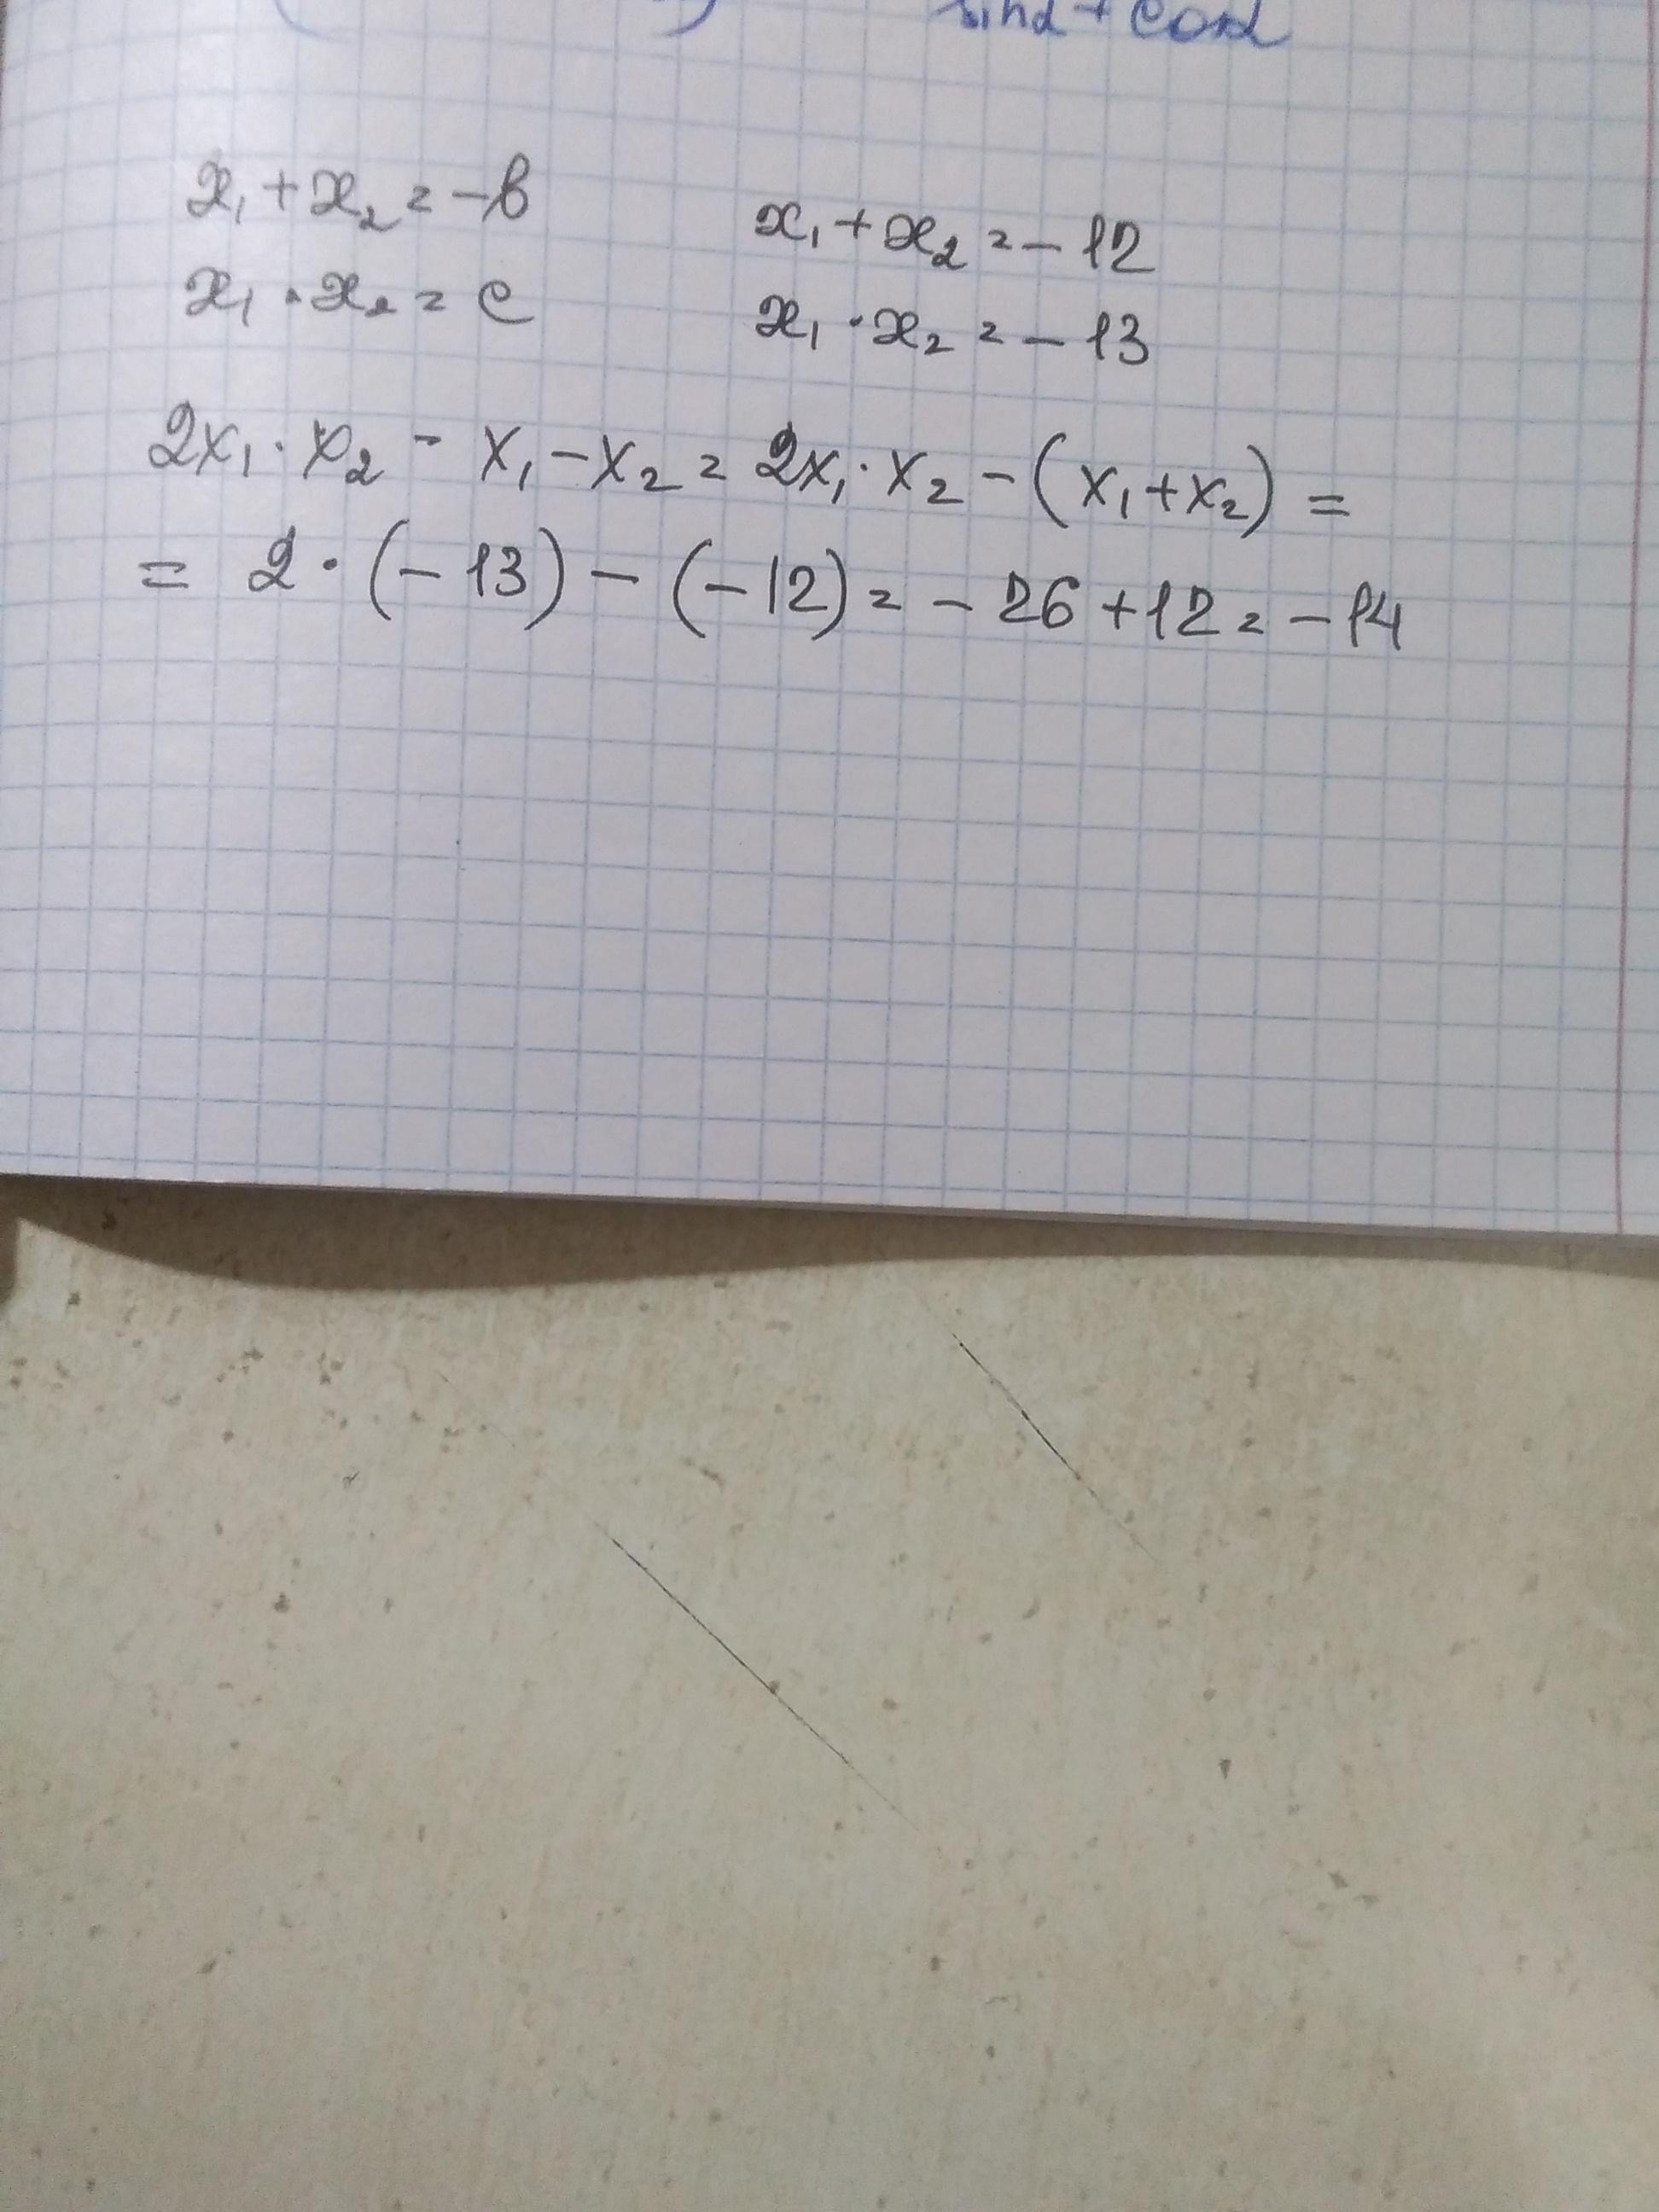 sinα + cosα
x₁ + x₂ = -b
x₁ · x₂ = c
x₁ + x₂ = - 12
x₁ · x₂ = - 13
2x₁ · x₂ - x₁ - x₂ = 2x₁ · x₂ - (x₁ + x₂) =
= 2 · (- 13) - (- 12) = - 26 + 12 = - 14